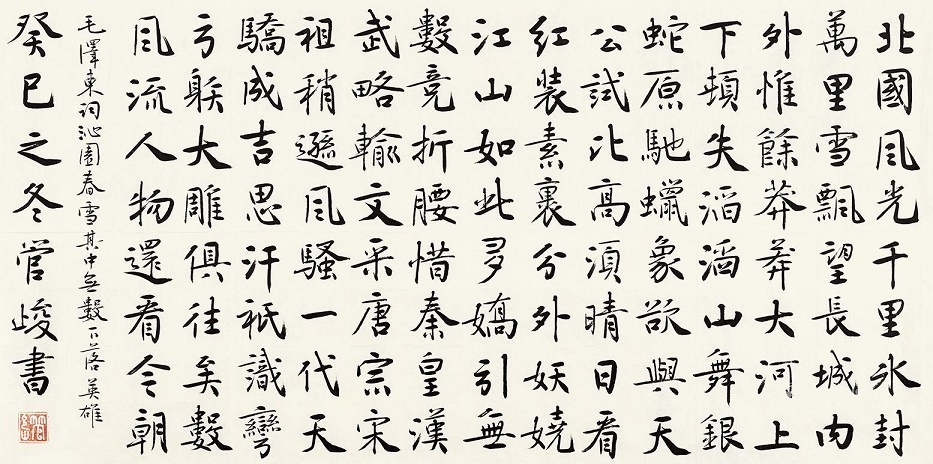 北國風光千里氷封
萬里雪飄望長城內
外惟餘莽莽大河上
下頓失滔滔山舞銀
蛇原馳蠟象欲與天
公試比高湏晴日看
紅裝素裹分外妖嬈
江山如此多嬌引無
數竞折腰惜秦皇漢
武略輸文采唐宗宋
祖稍遜風騷一代天
驕成吉思汗祇識彎
弓䠶大雕俱往矣數
風流人物還看今朝
毛澤東詞沁園春雪其中無數下落英雄
癸巳之冬管峻書